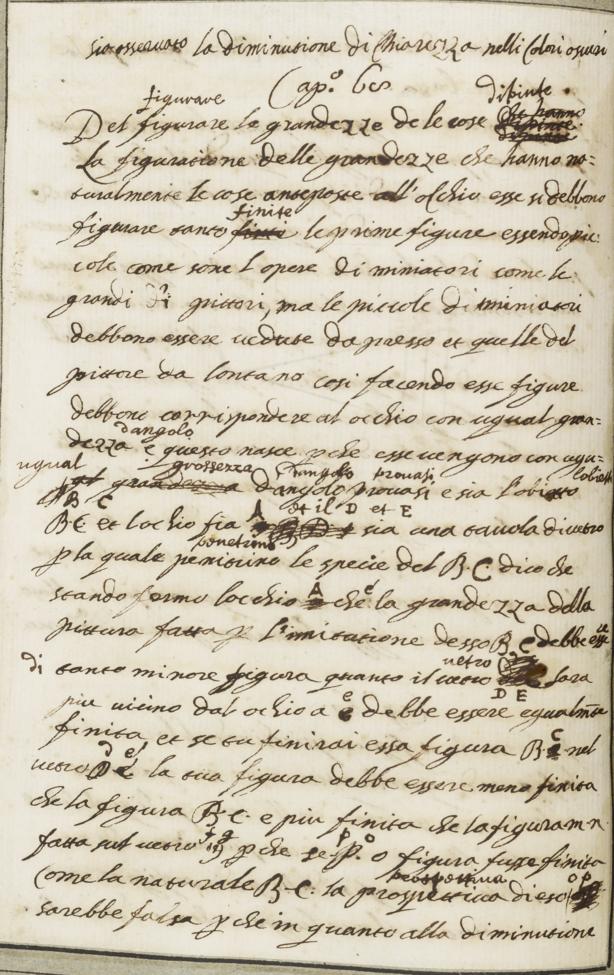 sia osservato la diminutione di Chiarezza nelli Colori oscuri
Cap.º
figurare dipinte
Del figurare le grandezze de le cose che hanno dipinte
La figuratione delle grandezze che hanno na=
turalmente le cose anteposte all'ochio esse si debbono
finite
figurare tanto finti le prime figure essendo pic
cole come sono l'opere di miniatori come le
grandi di pittori, ma le piccole di miniatori
debbono essere vedute da presso et quelle del
pittore da lontano cosi facendo esse figure
debbono corrispondere al occhio con ugual gran=
dangolo
dezza e questo nasce p che esse vengono con ugu=
ugual grossezza d'angolo provasi l'obietto
grandezza d'angolo provasi e sia l'obietto
B C A et il D et E
B C et l'ochio sia sia una tavola di vetro
penetrino
p la quale penitrino le specie del B.C dico che
A
stando fermo l'ochio che la grandezza della
pittura fatta p l'imitatione desso B C debbe esse
vetro
di tanto minore figura quanto il vetro sara
D E
piu vicino dal ochio a e debbe essere egualmte
finita et se tu finirai essa figura B C nel
d e
vetro la tua figura debbe essere meno finita
che la figura B C. e piu finita che la figura m n
f g p o
fatta sul vetro p che se p. o figura fusse finita
prospettiva
Come la naturale B-C. la prospettica di eso o p
sarebbe falsa p che in quanto alla diminutione